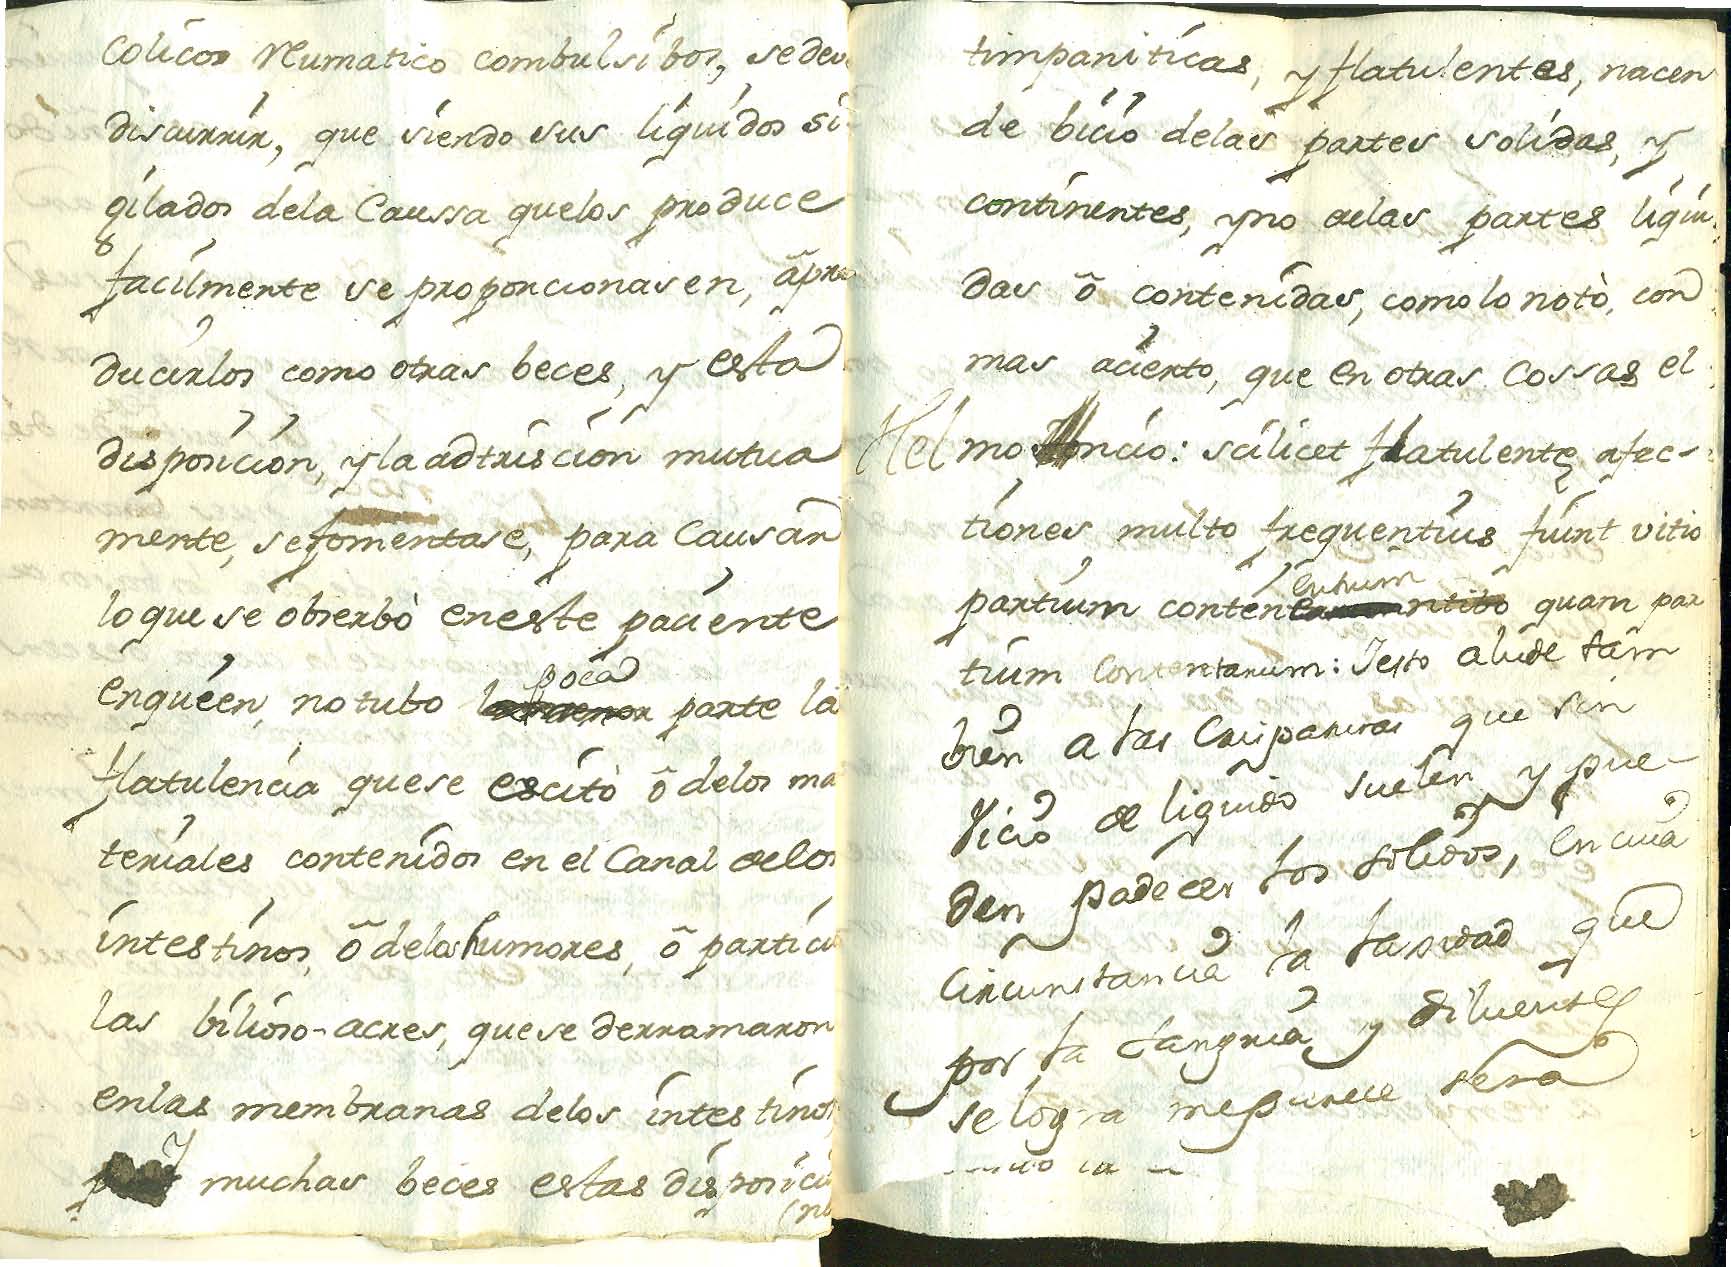 Colicos Reumatico combulsibos, se deve
discurrir, que siendo sus liquidos si-
gilados dela Caussa quelos produce
facilmente se proporcionasen, â pro
ducirlos como otras beces, y esta
disposicion, y la adtriscion mutua
mente, se fomentase, para Causar
lo que se obserbò en este paciente
enquéen, no tubo poca parte la
flatulencia quese escitò ô delos ma
teriales contenidos en el Canal delos
intestinos, ô delos humores, ô particu
las bilioso-acres, quese derramaron
enlas membranas delos intestinos,
y muchas beces estas disposicio
(nes
timpaniticas, y flatulentes, nacen
de bicio delas partes solidas, y
continentes, y no delas partes liqui
das ô contenidas, como lo notò, con
mas acierto, que en otras Cossas el
Helmoncio: scilicet flatulentę afec-
tiones multo frequentius fiunt vitio
partium continentium quam par
tium Contentarum: Iesto alude tam
bien a las Crispaturas que sin
Vicio de liquido suelen y pue-
den padecer los solidos, en cuia
Circunstancia la laxidad que
por la sangria, y diluentes
se logra me parece sera